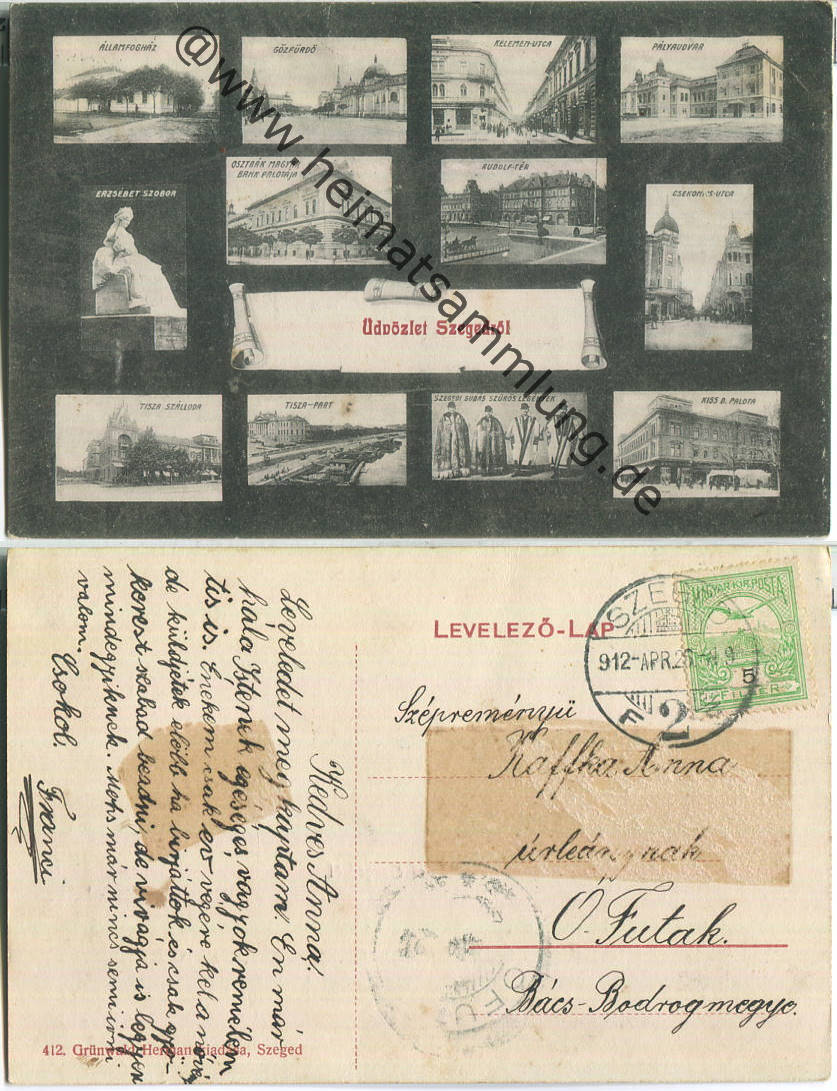 ÁLLAMFOGHÁZ
GŐZFÜRDŐ
KELEMEN-UTCA
PÁLYAUDVAR
ERZSÉBET SZOBOR
OSZTRÁK MAGYAR
BANK PALOTÁJA
RUDOLF-TÉR
CSEKONICS-UTCA
Üdvözlet Szegedről
TISZA SZÁLLODA
TISZA-PART
SZEGEDI SUBÁS SZŰRÖS LEGÉNYEK
KISS D. PALOTA
@www.heimatsammlung.de
LEVELEZŐ-LAP
SZEGED
912-APR.25
2
MAGYAR KIR. POSTA
5
FILLÉR
Szépreményü
Kaffka Anna
úrleánynak
Ó. Futak.
Bács-Bodrogmegye.
Kedves Anna!
Leveledet meg kaptam. En már
hála Istenek egéséges vagyok remélem
tis is. Enekem csak ev végere kel a
de küldjétek elöbb ha birjátok és csak
kereszt szabad hezdni, de is legyen
mindegyiknek. Mohs már nincs semi
valom. Csokol.
Franci
412. Grünwald Herman kiadása, Szeged